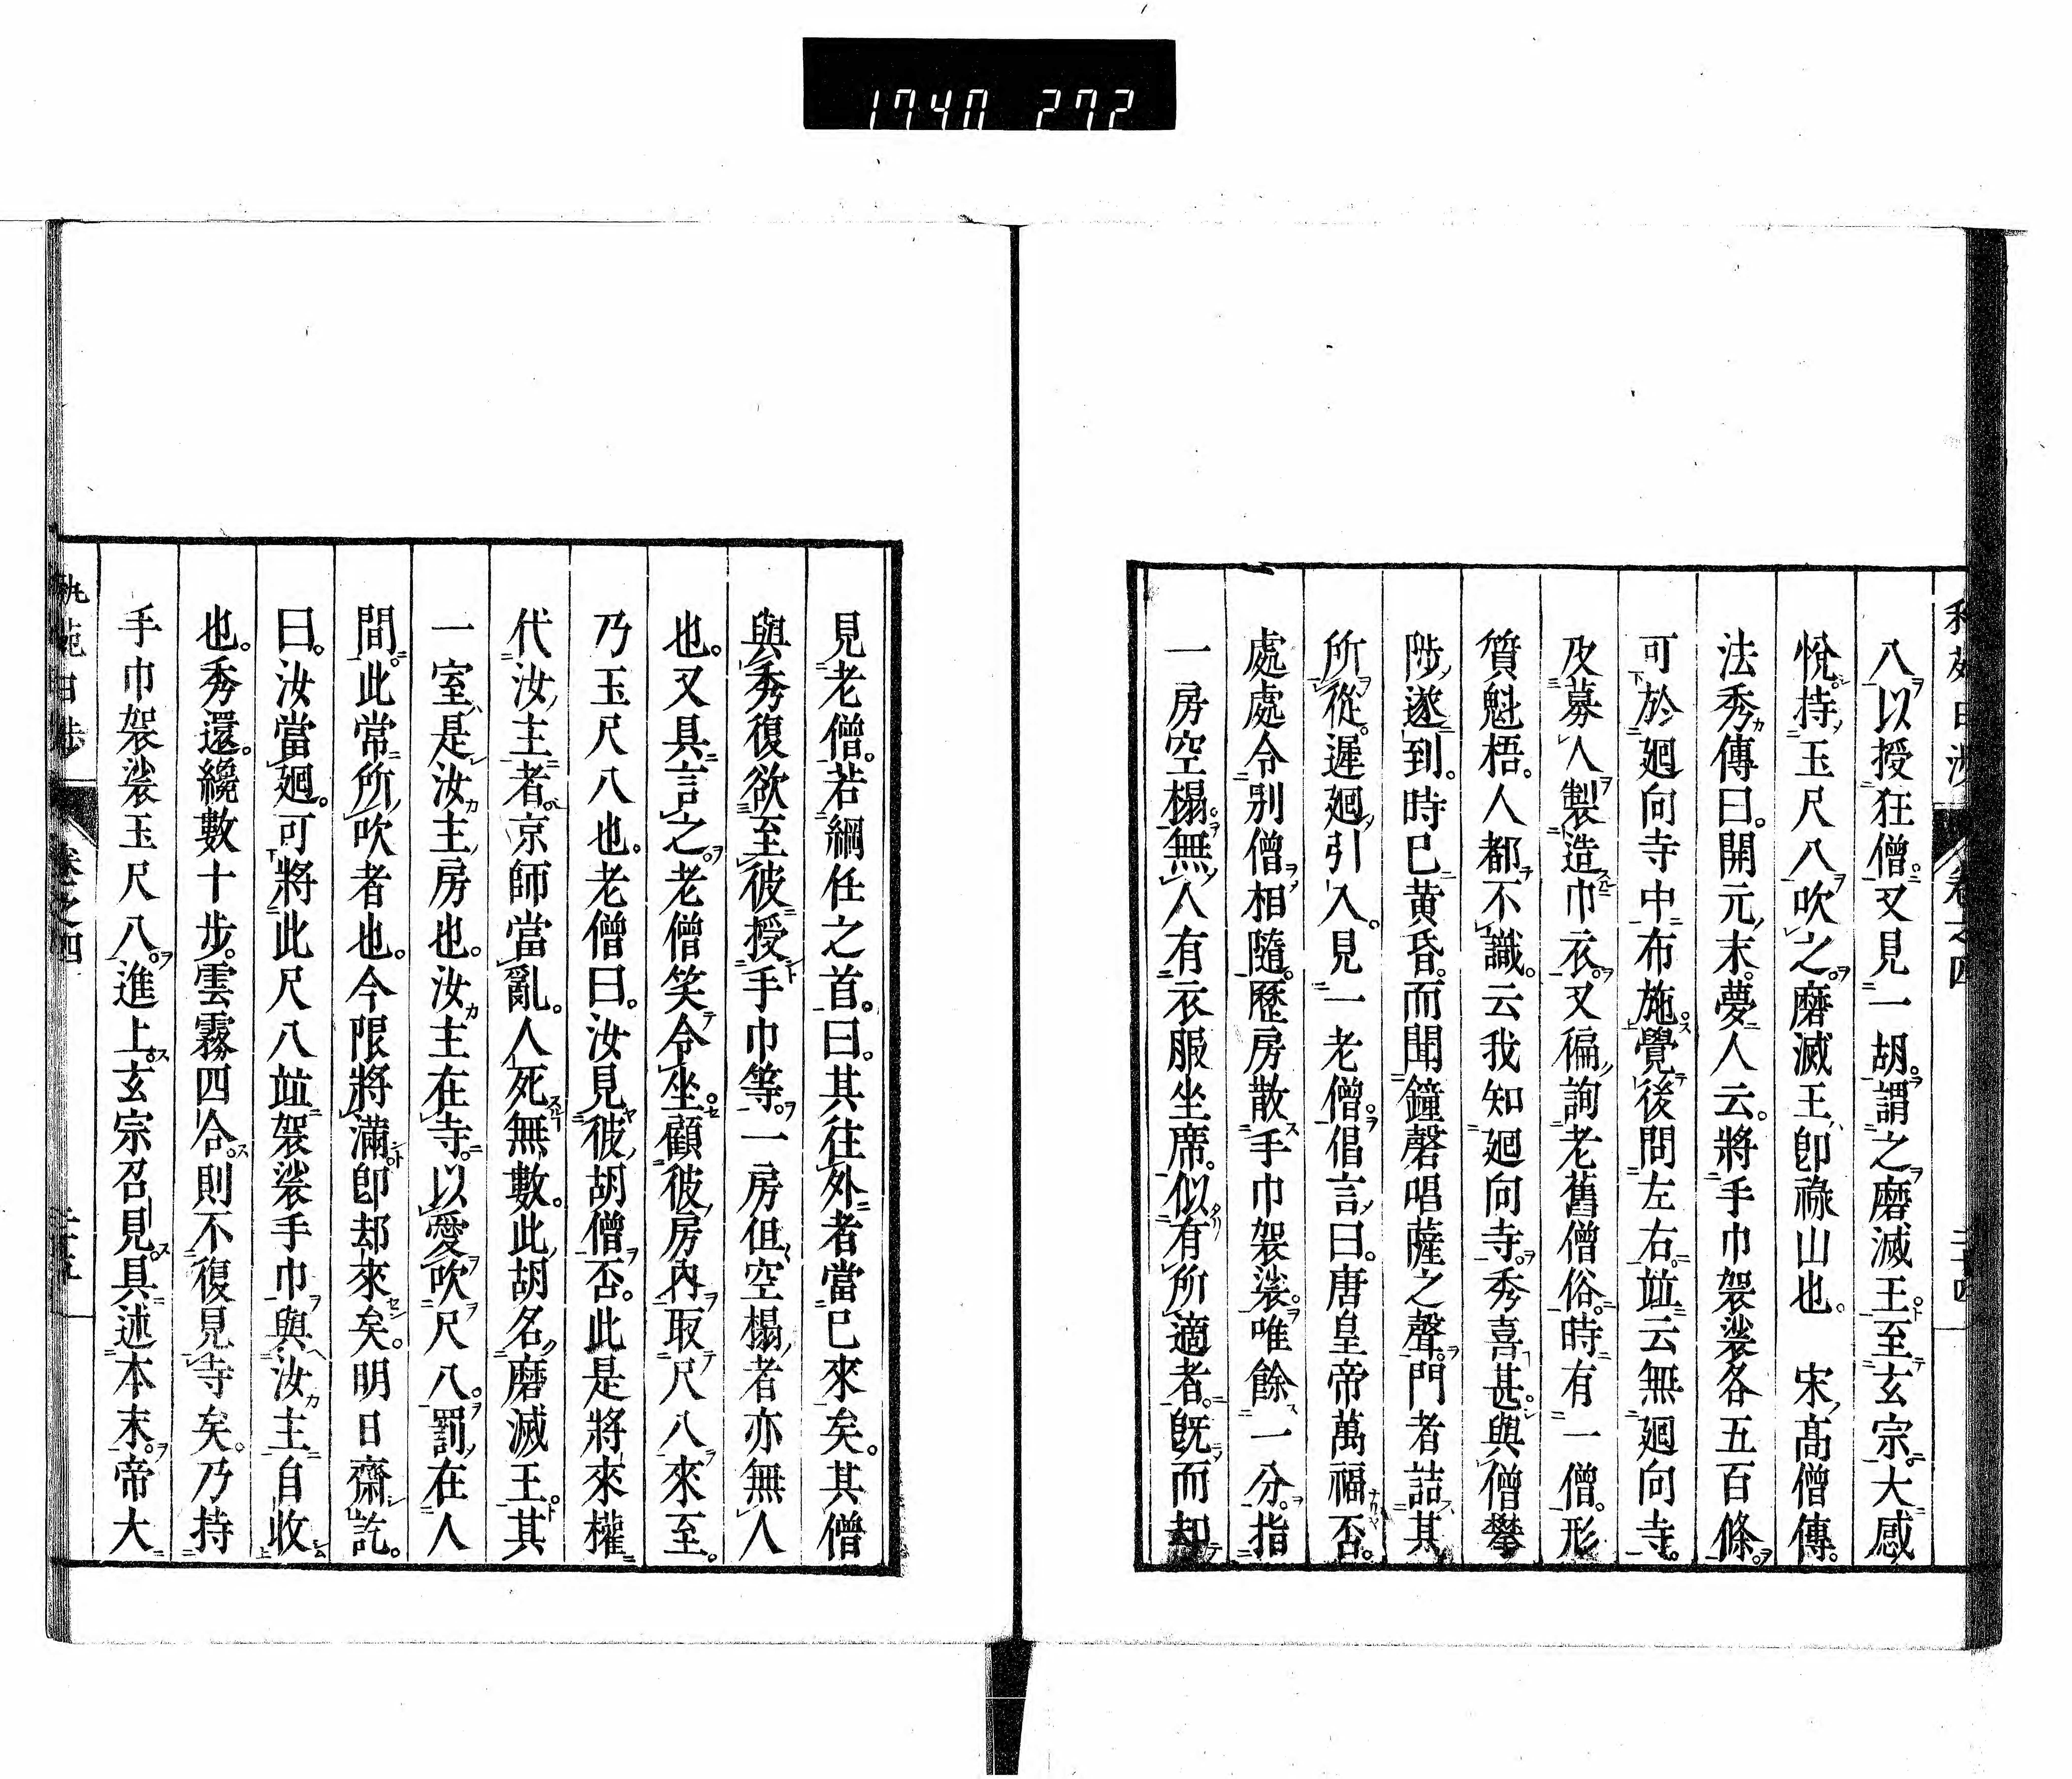 1740 272
八以授狂僧。又見一胡。謂之磨滅王。至玄宗。大感
悅。持玉尺八吹之。磨滅王、卽祿山也。　宋高僧傳。
法秀傳曰。開元末。夢人云。將手巾袈裟各五百條。
可於廻向寺中布施。覺後問左右。竝云無廻向寺。
及募人製造巾衣。又徧詢老舊僧俗。時有一僧。形
質魁梧。人都不識。云我知廻向寺。秀喜甚。與僧攀
陟遂到。時已黃昏。而聞鐘磬唱薩之聲。門者詰其
所從。遲廻引入。見一老僧。倡言曰。唐皇帝萬福否。
處處令別僧相隨。歷房散手巾袈裟。唯餘一分。指
一房空榻。無人有衣服坐席。似有所適者。旣而却
見老僧。若綱任之首。曰。其往外者當已來矣。其僧
與秀復欲至彼授手巾等。一房但空榻者亦無人
也。又具言之。老僧笑令坐。顧彼房內取尺八來至。
乃玉尺八也。老僧曰。汝見彼胡僧否。此是將來權
代汝主者。京師當亂。人死無數。此胡名磨滅王。其
一室是汝主房也。汝主在寺。以愛吹尺八。罰在人
間。此常所吹者也。今限將滿卽却來矣。明日齋訖。
曰。汝當廻。可將此尺八竝袈裟手巾與汝主自收
也。秀還。纔數十步。雲霧四合。則不復見寺矣。乃持
手巾袈裟玉尺八。進上。玄宗召見。具述本末。帝大
卷之四